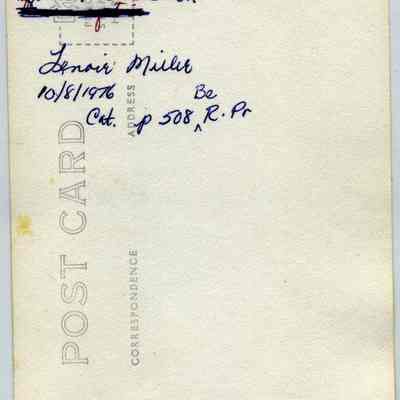 Lenoir Miller
10/8/1976
Be
Cat. p 508 ^ R. Pr
POST CARD
ADDRESS
CORRESPONDENCE